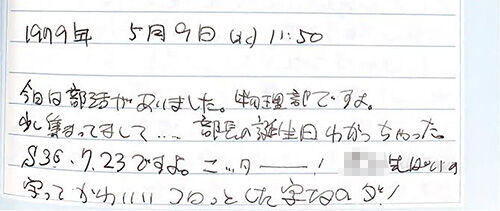 1979年 5月9日(水) 11:50
今日は部活がありました。物理部ですよ。
少し集まってまして… 部長の誕生日わかっちゃった。
S36.7.23ですよ。ニッター! 先ぱいの
字ってかわいいコロっとした字なのダ!